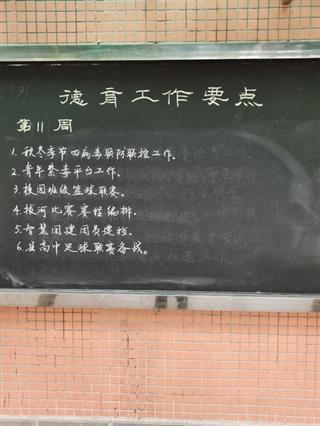 德育工作要点
第11周
1.秋冬季节四病毒联防联控工作。
2.青年禁毒平台工作。
3.校园班级篮球联赛。
4.拔河比赛赛程编排。
5.智慧团建团员建档。
6.县高中足球联赛备战。